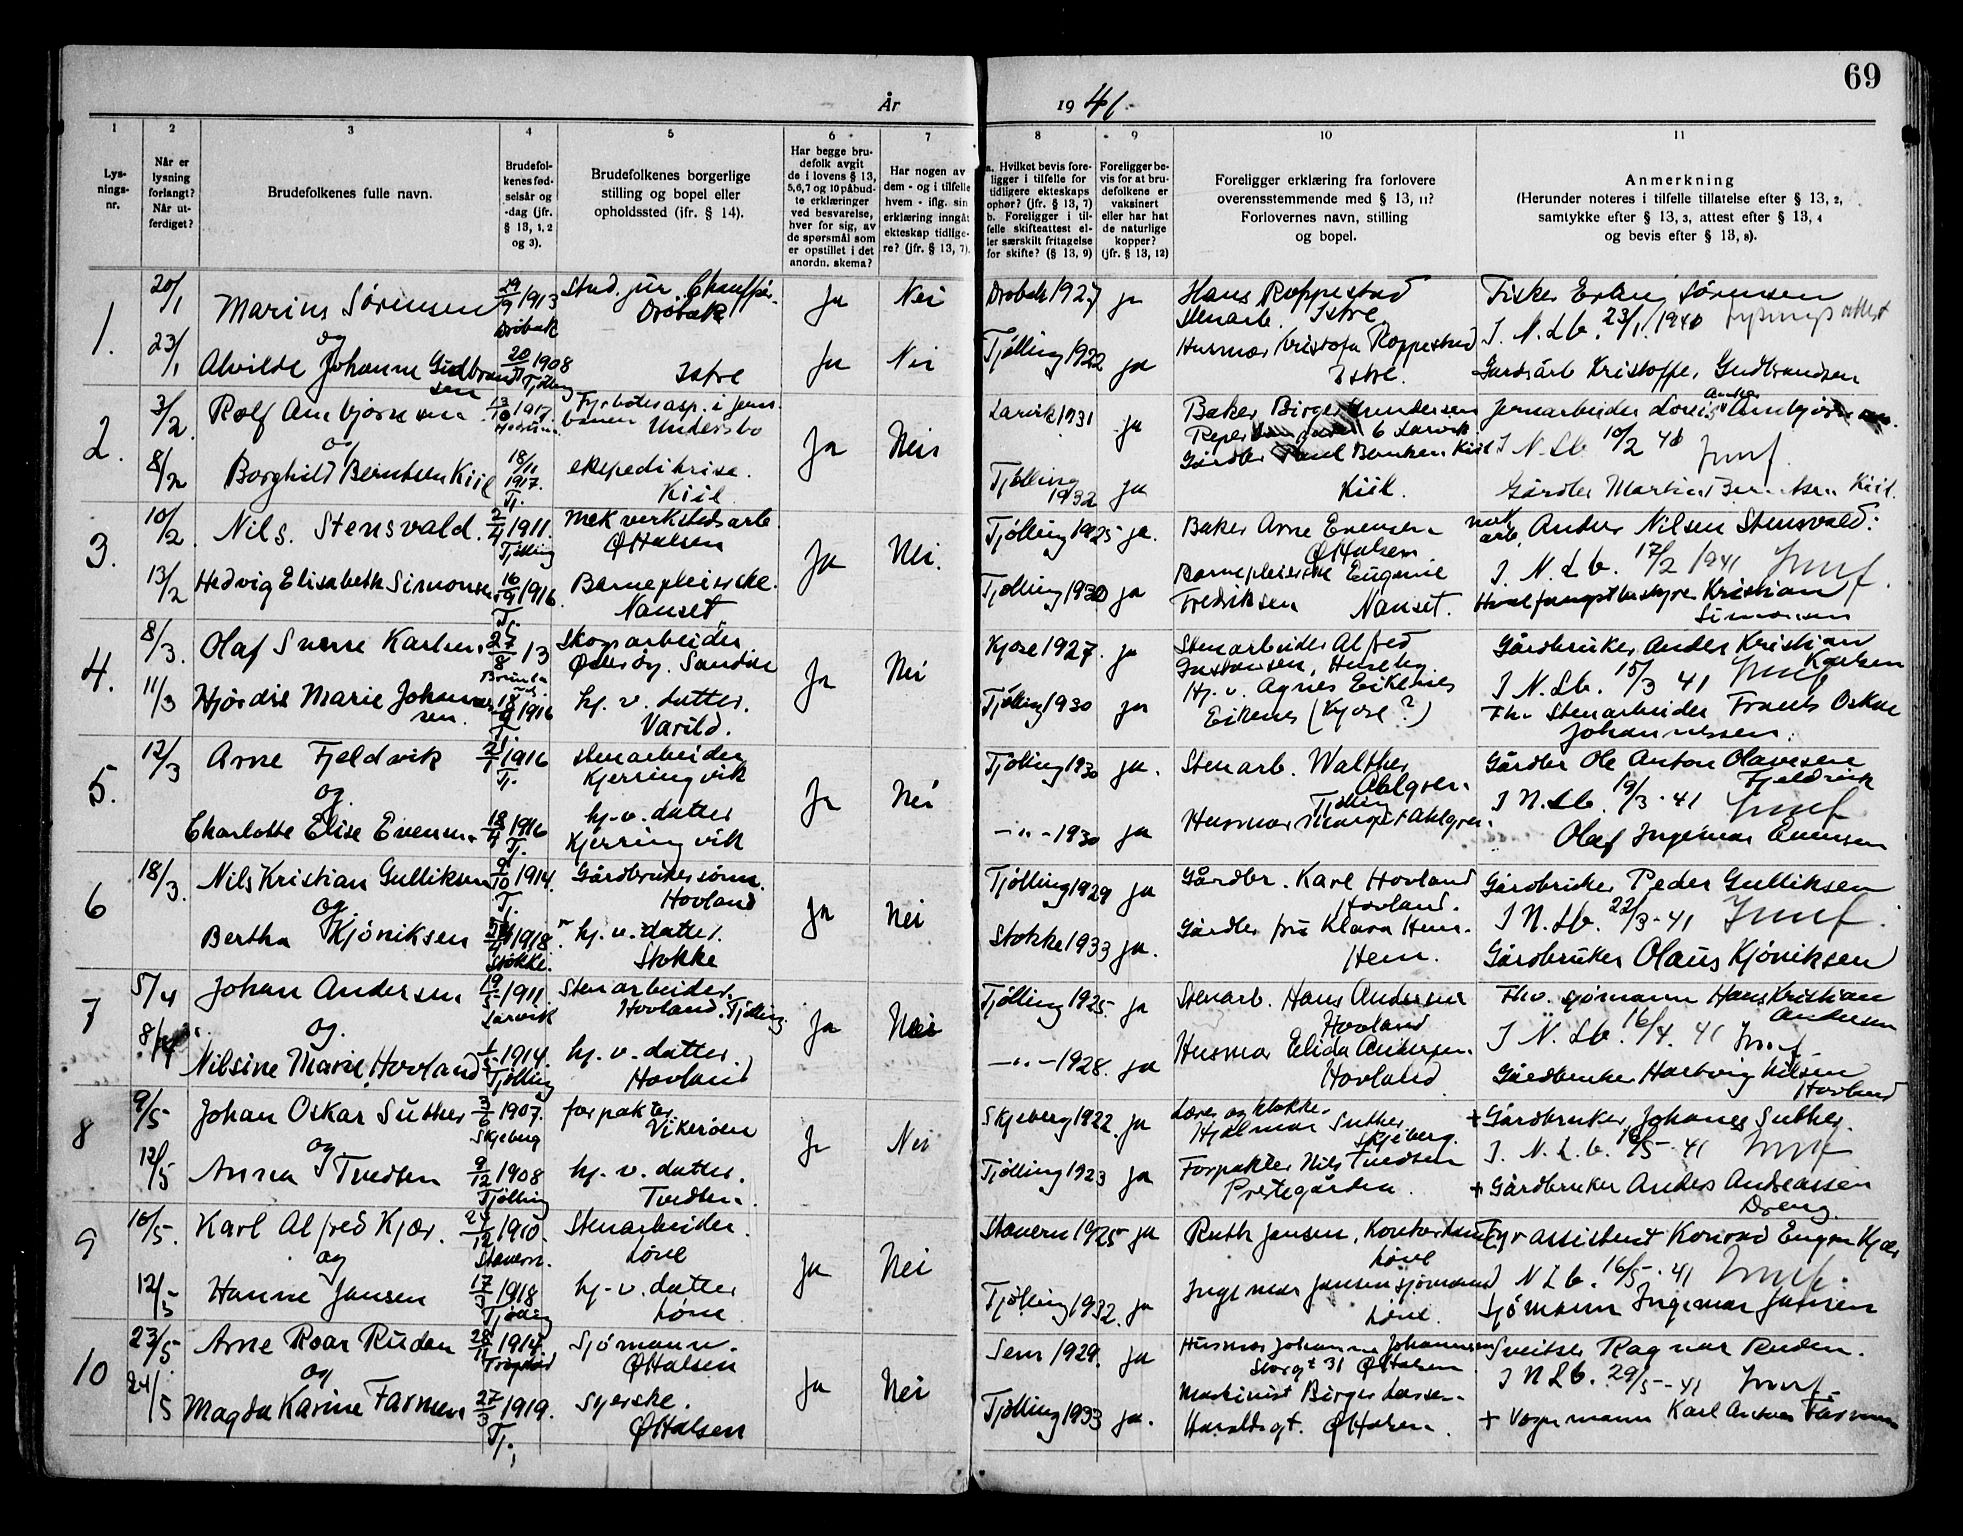 69
År 1941.
1
2
3
4
5
6
7
8
9
10
11
Lys-
nings-
nr.
Når er
lysning
forlangt?
Når ut-
ferdiget?
Brudefolkenes fulle navn.
Brudefol-
kenes fød-
selsår og
-dag (jfr.
§ 13, 1, 2
og 3).
Brudefolkenes borgerlige
stilling og bopel eller
opholdssted (ifr. § 14).
Har begge bru-
defolk avgit
de i lovens § 13,
5,6,7 og 10 påbud-
te erklæringer
ved besvarelse,
hver for sig, av
de spørsmål som
er opstillet i det
anordn. skema?
Har nogen av
dem - og i tilfelle
hvem - iflg. sin
erklæring inngått
ekteskap tidlige-
re? (jfr. § 13, 7).
a. Hvilket bevis fore-
ligger i tilfelle for
tidligere ekteskaps
ophør? (jfr. § 13, 7)
b. Foreligger i til-
felle skifteattest el-
ler særskilt fritagelse
for skifte? (§ 13, 9)
Foreligger be-
vis for at bru-
defolkene er
vaksinert
eller har hat
de naturlige
kopper?
(jfr. § 13, 12)
Foreligger erklæring fra forlovere
overensstemmende med § 13, 11?
Forlovernes navn, stilling
og bopel.
Anmerkning
(Herunder noteres i tilfelle tillatelse efter § 13, 2,
samtykke efter § 13, 3, attest efter § 13, 4
og bevis efter § 13, 8).
1.
20/1
23/1
Marius Sørensen
og
Alvilde Johanne Gudbrand
sen
29/9 1913
Drøbak
20/11 1908
Tjølling
Stud. jur. Chauffør.
Drøbak
Istre
Ja Nei
Ja Nei
Drøbak 1927 ja
Tjølling 1922 ja
Hans Roppestad
Stenarb. Istre.
Husmor Kristofa Roppestad
Istre.
Fisker Erling Sørensen
I N. Lb. 23/1. 1940 Lysningsattest
Gårdsarb Kristoffer Gudbrandsen
2.
3/2.
8/2
Rolf Annbjørnsen
og
Borghild Berntsen Kiil
13/10 1917
18/11
1917.
Tj.
Fyrbøterasp. i Jern
banen Undersbo
ekspeditrise.
Kiil.
Ja Nei
Larvik 1931 ja
Tjølling
1932 ja
Baker Birger Gundersen
6 Larvik
Gårdbr Berntsen Kiil
Kiil.
Jernarbeider Louis Annbjørnsen.
I N. Lb 10/2 40
Gårdbr Martin Berntsen Kiil.
3.
10/2.
13/2
Nils. Stensvald.
Hedvig Elisabeth Simonsen
2/4 1911.
Tjølling
16/9 1916.
Tj.
Mek verkstedsarb
ØHalsen
Barnepleierske.
Nanset.
Ja Nei.
Tjølling 1925 ja.
Tjølling 1930 ja
Baker Arne Evensen
ØHalsen.
Barnepleierske Eugenie
Fredriksen Nanset.
mek
arb. Anders Nilsen Stensvald.
I. N. Lb. 17/2 1941
Hvalfangstbestyrer Kristian
Simonsen
4.
8/3.
11/3
Olaf Sverre Karlsen
Hjørdis Marie Johannes
sen.
27/8 13
18/9 1916
Tj.
Skogsarbeider
Østerøy. Sandar
hj. v. datter.
Varild.
Ja Nei
Kjose 1927. ja
Tjølling 1930 ja
Stenarbeider Alfred
Gustavsen, Huseby.
Hj. v. Agnes Eikenes
Eikenes (Kjose?)
Gårdbruker Anders Kristian
Karlsen
I N. Lb. 15/3 41
Fhv. Stenarbeider Frants Oskar
Johannessen.
5.
12/3
Arne Fjeldvik
og.
Charlotte Elise Evensen.
2/1 1916
Tj.
18/4 1916
Tj.
Stenarbeider
Kjerringvik
hj. v. datter
Kjerringvik
Ja Nei
Tjølling 1930 ja.
— „ — 1930 ja
Stenarb. Walther
Ahlgren.
Tjølling
Husmor Margit Ahlgren.
Gårdbr Ole Anton Olavesen
Fjeldvik
I N. Lb. 19/3. 41
Olaf Ingemar Evensen
6
18/3.
Nils Kristian Gulliksen
og
Bertha Kjøniksen
9/10 1914.
Tj.
1918.
Stokke.
Gårdbrukersønn.
Hovland
hj. v. datter.
Stokke
Ja Nei
Tjølling 1929 ja
Stokke 1933 ja.
Gårdbr. Karl Hovland
Hovland.
Gårdbr fru Klara Hem.
Hem.
Gårdbruker Peder Gulliksen
I N. Lb. 22/3 - 41
Gårdbruker Olaus Kjøniksen
7
5/4
8/4
Johan Andersen
og.
Nilsine Marie Hovland
19/5 1911
Larvik
1/5 1914.
Tjølling
Stenarbeider.
Hovland. Tjølling
hj. v. datter.
Hovland
Ja Nei
Tjølling 1925. ja
— „ — 1928. ja
Stenarb. Hans Andersen
Hovland
Husmor Elida Andersen.
Hovland
Fhv. sjømann Hans Kristian
Andersen
I N. Lb. 16/4. 41
Gårdbruker Hartvig Nilsen
Hovland
8
9/5
12/5
Johan Oskar Suther
og
Anna Tvedten
3/6 1907.
Skjeberg
9/12 1908
Tjølling
forpakter
Vikerøen
hj. v. datter.
Tvedten.
Ja Nei
Skjeberg 1922. ja
Tjølling 1923 ja
Lærer og klokker
Hjalmar Suther
Skjeberg.
Forpakter Nils Tvedten
Prestegården.
+ Gårdbruker Johanes Suther.
I. N. L. b. 16/5 - 41
+ Gårdbruker Anders Andreassen
Dreng.
9
10/5.
12/5
Karl Alfred Kjær.
og
Hanne Jansen
1910.
Stavern.
17/3 1918
Tjølling
Stenarbeider.
Løve
hj. v. datter
Løve
Ja Nei
Stavern 1925 ja
Tjølling 1932. ja
Ruth Jansen, Kontordame
Løve
Ingemar Jansen sjømann
Løve.
Fyrassistent Konrad Eugen Kjær
I N L b. 16/5. 41
Sjømann Ingemar Jansen
10
23/5
24/5
Arne Roar Ruden
og
Magda Karine Farmen
28/11 1914.
Trøgstad
27/3 1919.
Tj.
Sjømann.
ØHalsen
Syerske.
ØHalsen
Ja Nei
Sem 1929. ja
Tjølling 1933 ja.
Husmor Johanne Johannesen
Storgt 31 ØHalsen
Maskinist Birger Larsen.
Haraldsgt. ØHalsen.
Sveitser Ragnar Ruden.
I N Lb. 29/5 - 41
+ Vognmann Karl Anton Farmen